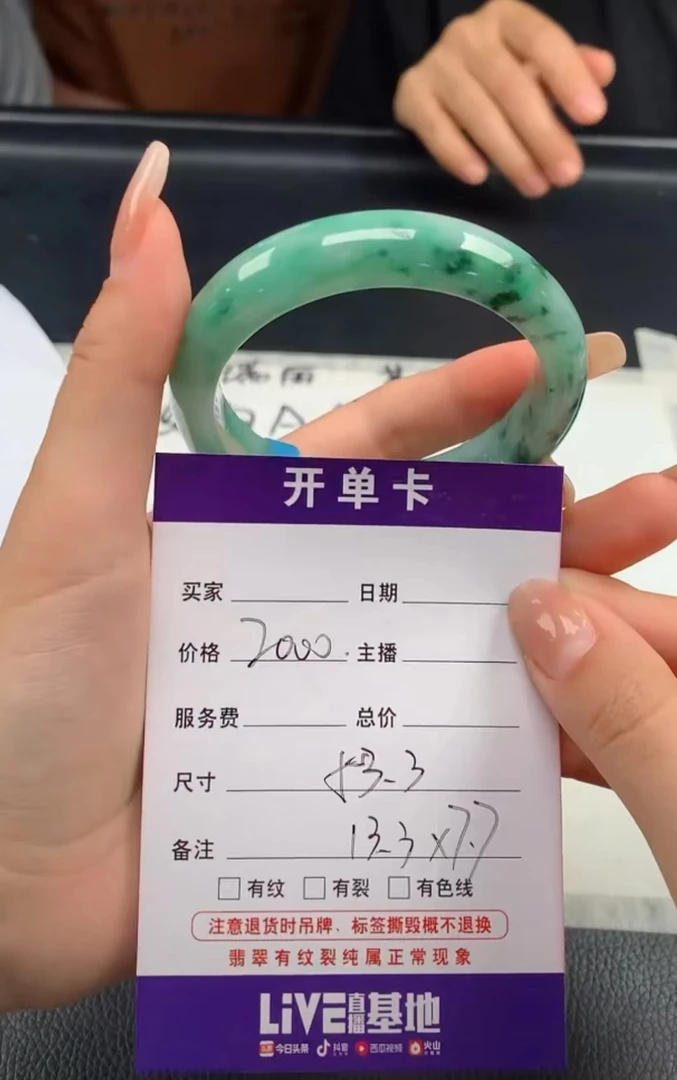 开单卡
买家 日期
价格 2000. 主播
服务费 总价
尺寸
备注 13.3×7.7
有纹 有裂 有色线
注意退货时吊牌、标签撕毁概不退换
翡翠有纹裂纯属正常现象
LiVE直播基地
今日头条 抖音 西瓜视频 火山